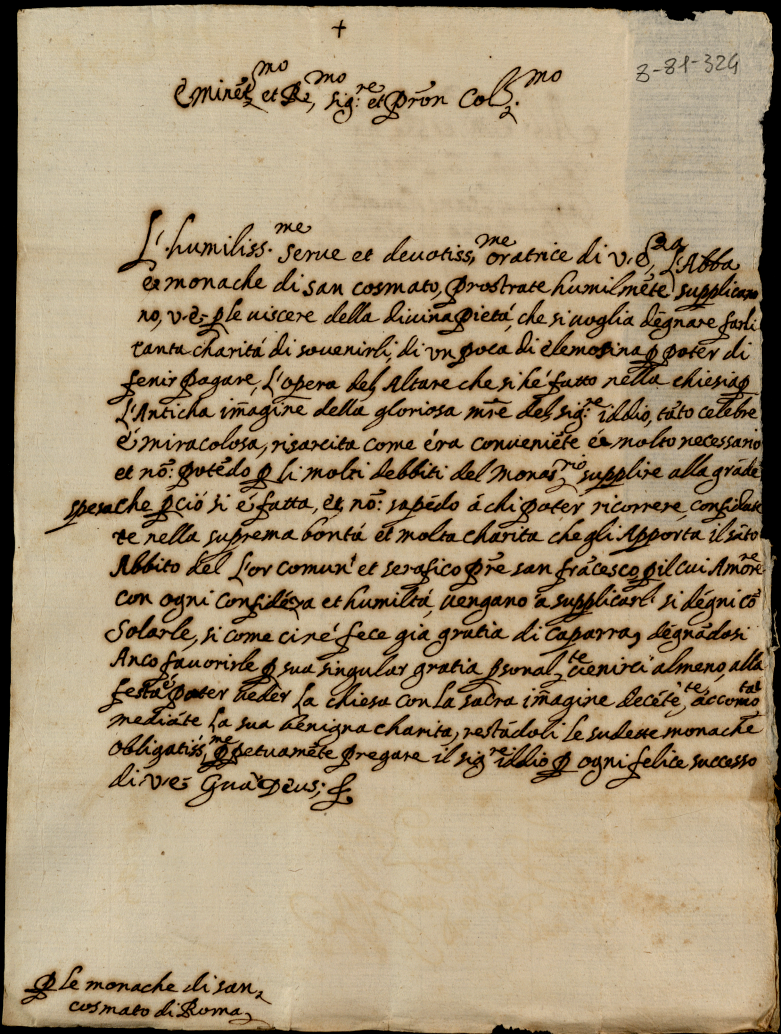 +
8-81-324
Eminẽt.mo et R.mo sig.re et Prõn Col.mo
L'humiliss.me serve et devotiss.me oratrice di v.E. L'Abba
et monache di san cosmato, prostrate humilmẽte supplicano
no, v.e. p le viscere della divina pietá, che si voglia dégnare farli
tanta charitá di sovenirli, di un poca di elemosina p poter di
fenir pagare, L'opera del Altare che si hé fatto nella chiesia p
L'Anticha imãgine della gloriosa mr̃e del sig.re iddio, tãto celebre
é miracolosa, risarcita come éra conveniẽte é molto necessario
et nõ: potẽdo p li molti debbiti del Monas.rio supplire alla grãde
spesa che p ció si é fatta, et nõ: sapẽdo á chi poter ricorrere, confidate
te nella suprema bontá et molta charita che gli Apporta il sãto
Abbito del L'or comun' et serafico pr̃e san frãcesco p il cui Amore
con ogni confidẽza et humiltá, vengano á supplicarl' si dégni cõ
solarle, si come ci né fece gia gratia di caparra, dégnãdosi
Anco favorirle p sua singular gratia psonal.te vienirci almeno, alla
festa é poter veder La chiesa con la sacra imãgine decẽte.te accomotat
mediãte La sua benigna charita, restãdoli le sudette monache
obligatiss.me ppetuamẽte pregare il sig.re iddio p ogni felice successo
di v.e. Gua Deus;
p Le monache di san
cosmato di Roma